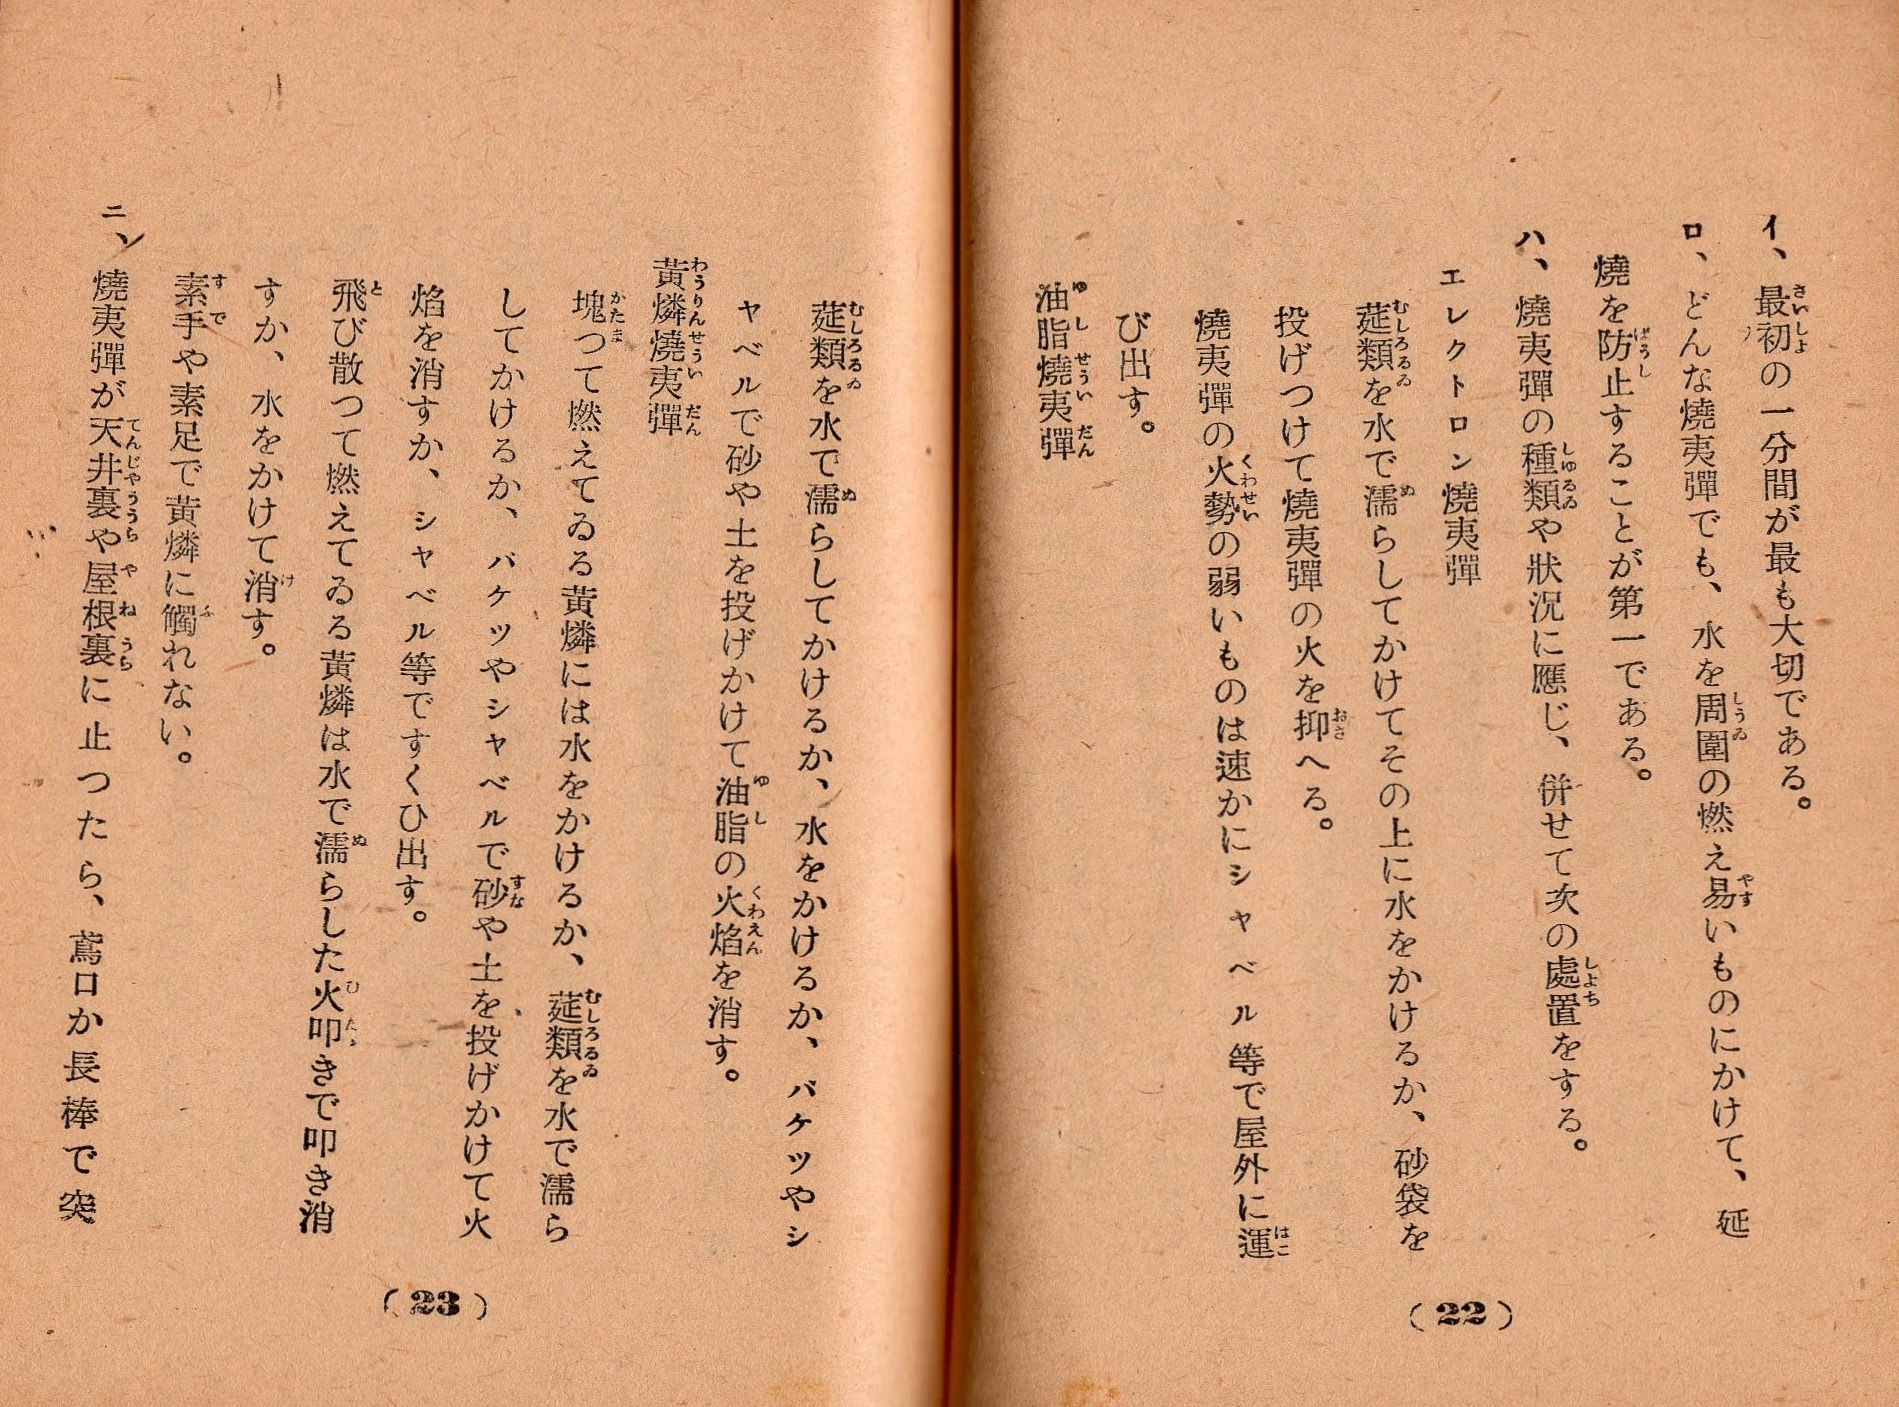 イ、最初の一分間が最も大切である。
ロ、どんな燒夷彈でも、水を周圍の燃え易いものにかけて、延
燒を防止することが第一である。
ハ、燒夷彈の種類や狀況に應じ、併せて次の處置をする。
エレクトロン燒夷彈
莚類を水で濡らしてかけてその上に水をかけるか、砂袋を
投げつけて燒夷彈の火を抑へる。
燒夷彈の火勢の弱いものは速かにシャベル等で屋外に運
び出す。
油脂燒夷彈
(22)
莚類を水で濡らしてかけるか、水をかけるか、バケツやシ
ャベルで砂や土を投げかけて油脂の火焰を消す。
黃燐燒夷彈
塊つて燃えてゐる黃燐には水をかけるか、莚類を水で濡ら
してかけるか、バケツやシャベルで砂や土を投げかけて火
焰を消すか、シャベル等ですくひ出す。
飛び散つて燃えてゐる黃燐は水で濡らした火叩きで叩き消
すか、水をかけて消す。
素手や素足で黃燐に觸れない。
ニ、燒夷彈が天井裏や屋根裏に止つたら、鳶口か長棒で突
(23)